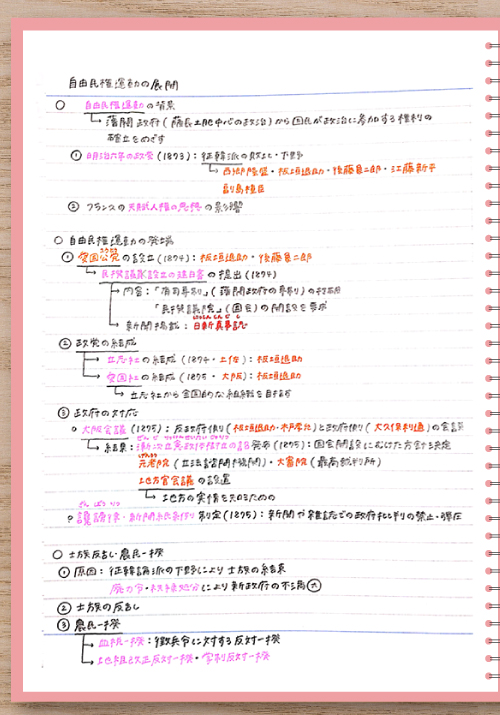 自由民権運動の展開
○ 自由民権運動の背景
→ 藩閥政府(薩長土肥中心の政治)から国民が政治に参加する権利の
確立をめざす
① 明治六年の政変(1873):征韓派の敗北・下野
→ 西郷隆盛・板垣退助・後藤象二郎・江藤新平
副島種臣
② フランスの天賦人権の思想の影響
○ 自由民権運動の発端
① 愛国公党の設立(1874):板垣退助・後藤象二郎
→ 民撰議院設立の建白書の提出(1874)
→ 内容:「有司専制」(藩閥政府の専制)の
「民撰議院」(国会)の開設を要求
→ 新聞掲載:日新真事誌
② 政党の結成
→ 立志社の結成(1874・土佐):板垣退助
→ 愛国社の結成(1875・大阪):板垣退助
→ 立志社から全国的な組織を目指す
③ 政府の対応
○ 大阪会議(1875):反政府側(板垣退助・木戸孝允)と政府側(大久保利通)の会談
→ 結果:漸次立憲政体樹立の詔発布(1875):国会開設にむけた方針を決定
元老院(立法諮問機関)・大審院(最高裁判所)
地方官会議の設置
→ 地方の実情を知るためのもの
○ 讒謗律・新聞紙条例制定(1875):新聞や雑誌での政府批判の禁止・弾圧
○ 士族反乱・農民一揆
① 原因:征韓論派の下野により士族の結束
廃刀令・秩禄処分により新政府の不満㊅
② 士族の反乱
③ 農民一揆
→ 血税一揆:徴兵令に対する反対一揆
→ 地租改正反対一揆・学制反対一揆